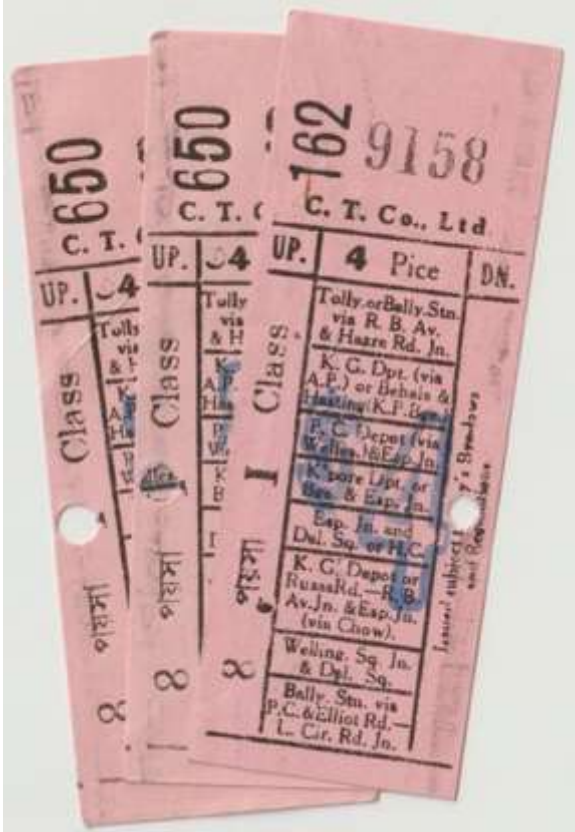 650
C. T.
UP. 4
Tolly
via
& H
Class
পয়সা
৪
650
C. T. C
UP. 4
Tolly
via
& H
Class
পয়সা
৪
162 9158
C. T. Co., Ltd
UP. 4 Pice DN.
Tolly. or Bally. Stn.
via R. B. Av.
& Hazre Rd. Jn.
K. G. Dpt. (via
A.P.) or Behala &
Hasting (K.P.
P. C. Depot (via
Welles.) & Esp. Jn.
K'pore Dpt. or
& Esp. Jn.
Esp. Jn. and
Dal. Sq. or H.C.
K. G. Depot or
Russa Rd.—R. B.
Av. Jn. & Esp. Jn.
(via Chow).
Welling. Sq. Jn.
& Dal. Sq.
Bally. Stn. via
P.C. & Elliot Rd.—
L. Cir. Rd. Jn.
I Class.
পয়সা
৪
Issued subject
and Regulations